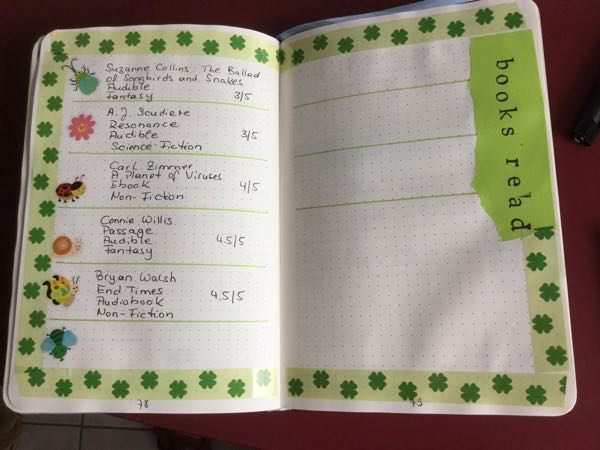 Suzanne Collins: The Ballad
of Songbirds and Snakes
Audible
Fantasy 3/5
A.J. Scudiere
Resonance
Audible 3/5
Science Fiction
Carl Zimmer
A Planet of Viruses
Ebook 4/5
Non-Fiction
Connie Willis
Passage
Audible 4.5/5
Fantasy
Bryan Walsh
End Times
Audiobook 4,5/5
Non-Fiction
78
books read
79